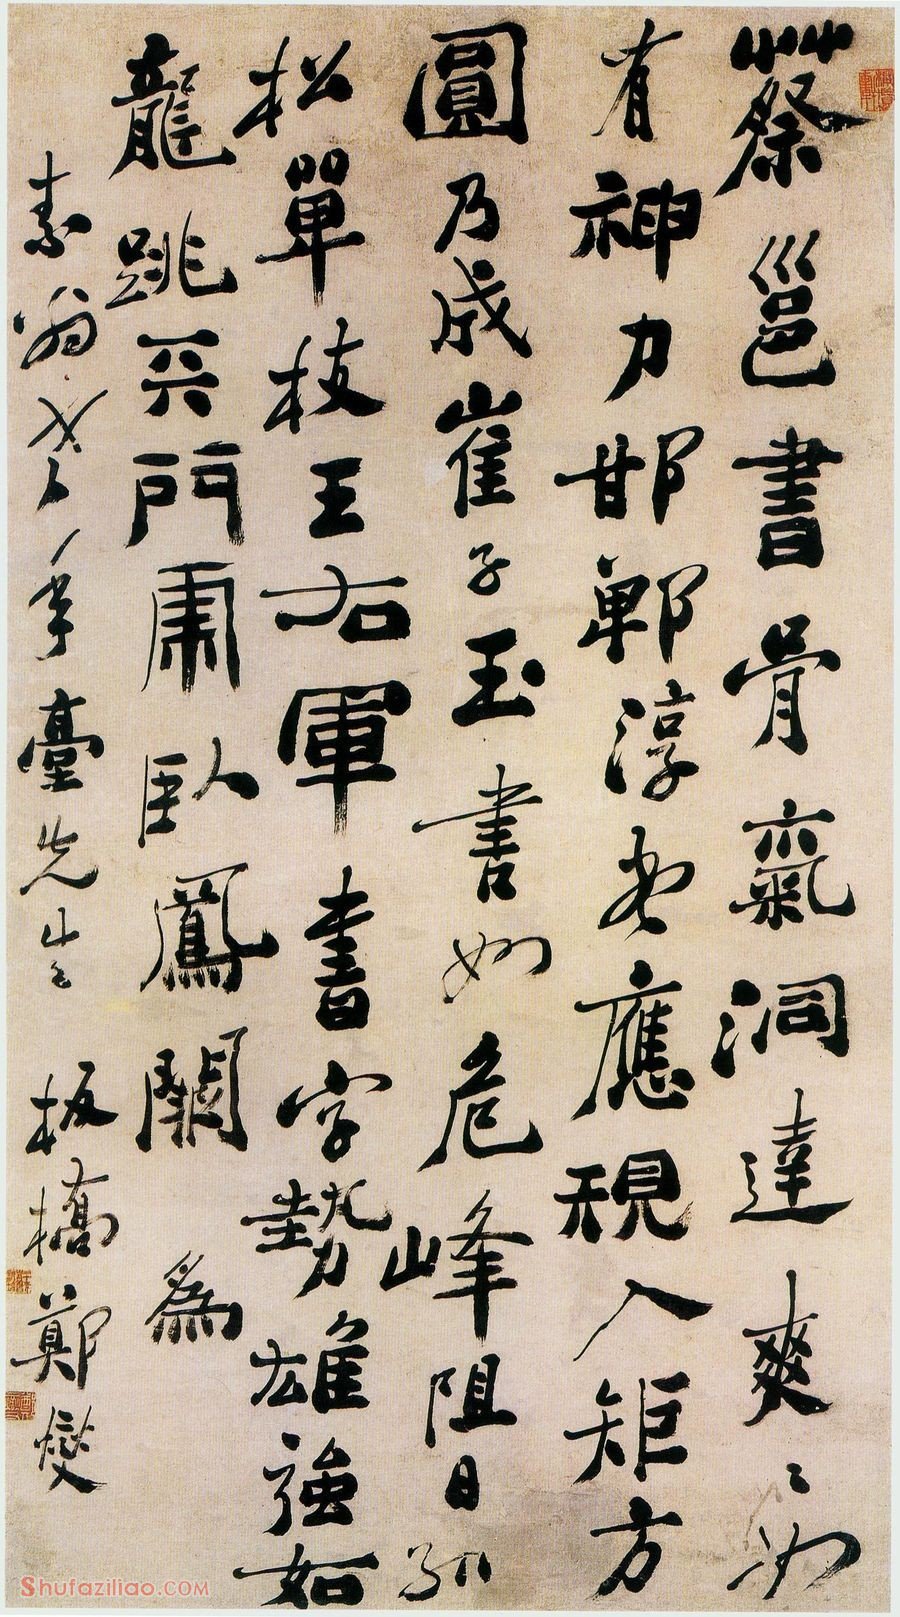 蔡邕書骨氣洞達爽〻如
有神力邯鄲淳書應規入矩方
圓乃成崔子玉書如危峰阻日孤
松單枝王右軍書字勢雄強如
龍跳天門虎臥鳳闕 為
素翁老年臺先生 板橋鄭燮
Shufaziliao.COM